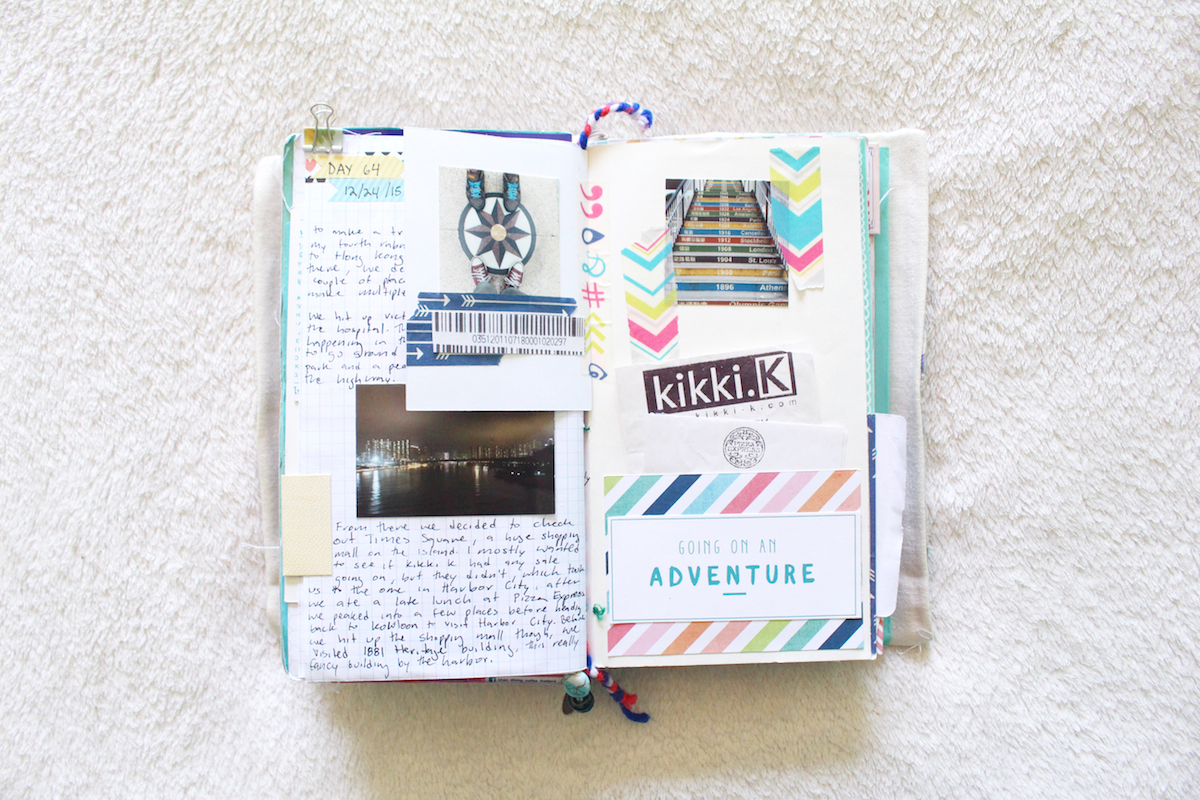 DAY 64
12/24/15
to make a tr
my fourth rabi
to Hong Kong
there, we de
couple of plac
make multiple
We hit up vict
the hospital. Th
happening in th
to go around
park and a pea
the highway.
0351201107180001020297
From there we decided to check
out Times Square, a huge shopping
mall on the island. I mostly wanted
to see if kikki.k had any sale
going on, but they didn't, which took
us to the one in Harbor City. After
we ate a late lunch at Pizza Express
we peaked into a few places before heading
back to Kowloon to visit Harbor City. Before
we hit up the shopping mall though, we
visited 1881 Heritage building, this really
fancy building by the harbor.
&
#
Los Angeles
1916
Stockholm
1912
London
1908
1904 St. Louis
1900
1896 Athens
Olympic Ga
kikki.K
kikki-k.com
PIZZA
EXPRESS
GOING ON AN
ADVENTURE